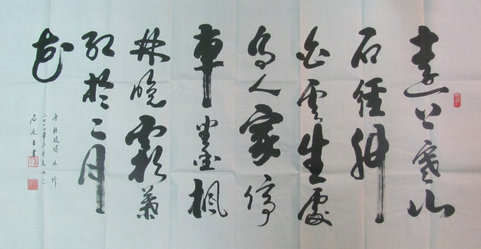 遠上寒山
石徑斜
白雲生處
有人家停
車坐愛楓
林晚霜葉
紅於二月
花
唐杜牧詩山行